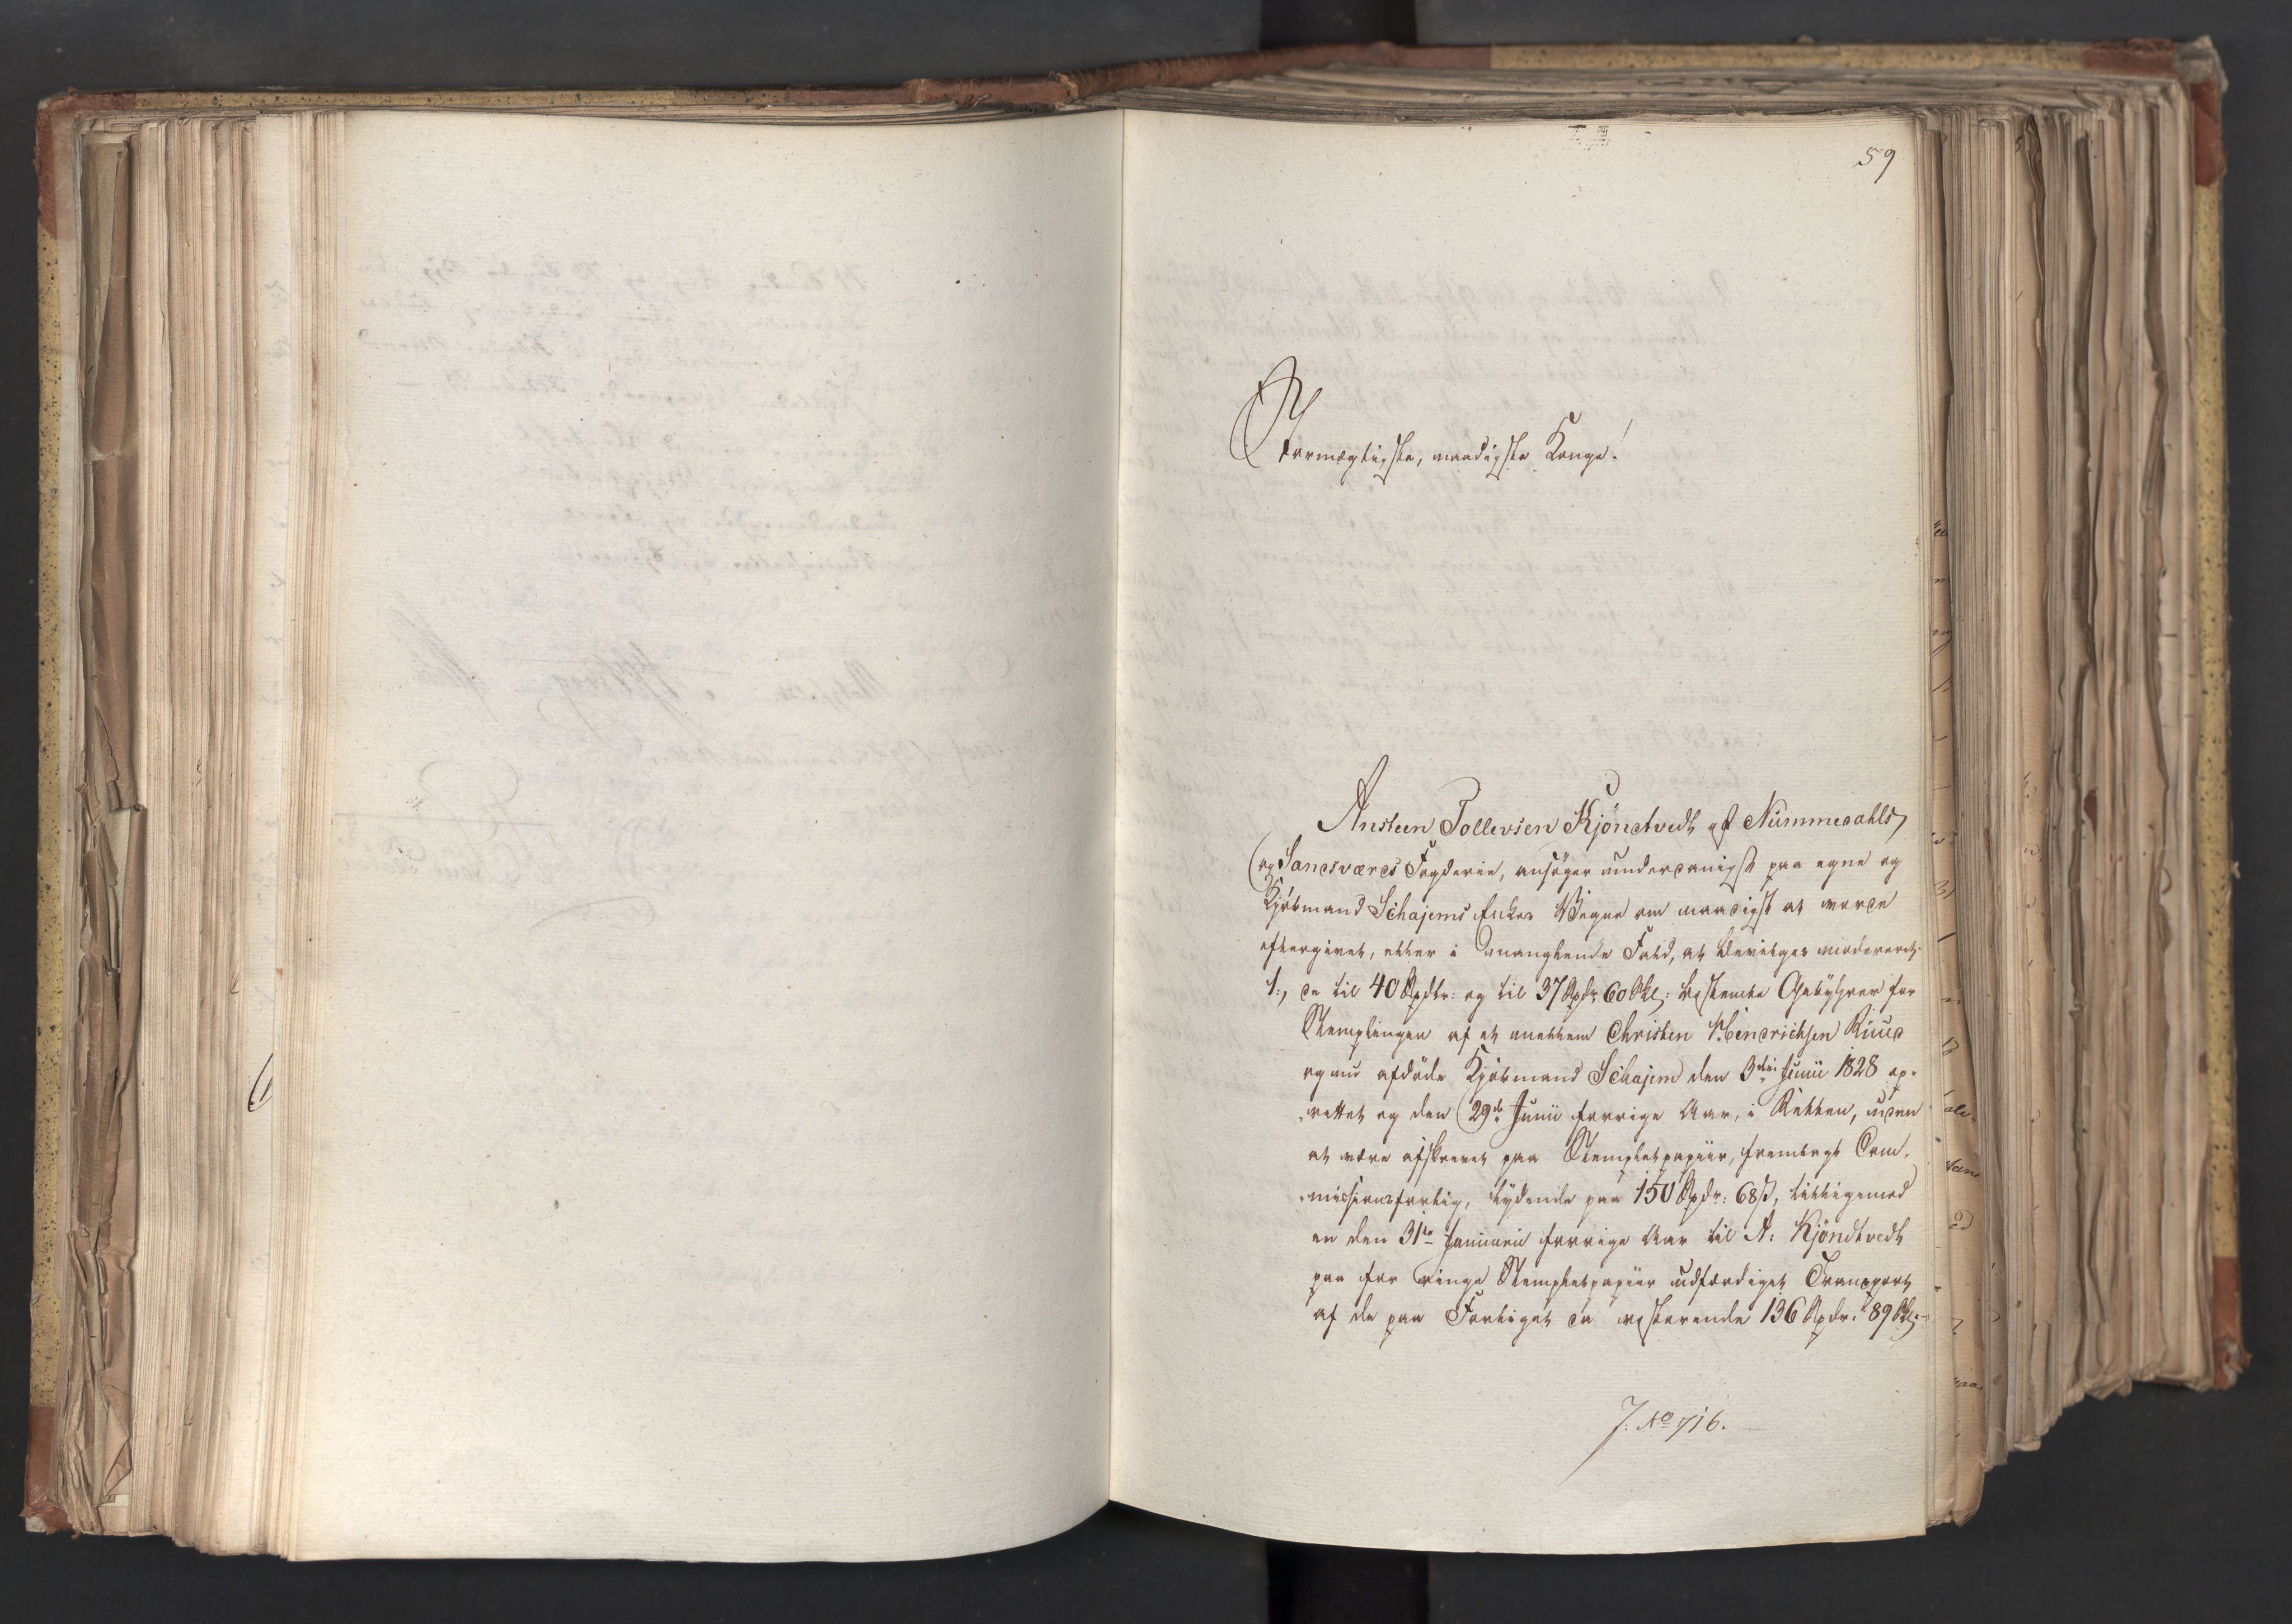 59
Stormægtigste, naadigste Konge!
Ansteen Tollevsen Kjöndtvedt af Nummedahls
og Sandsværds Fogderie, ansøger underdanigst paa egne og
Kjøbmand Schajems Enkes Vegne om naadigst at vorde
eftergivet, eller i manglende Fald, at bevilges modereret
1., de til 40 Spdlr: og til 37 Spdr. 60 Skl: bestemte Gebyhrer for
Stemplingen af et mellem Christen Hendrichsen Ruud
og nu afdøde Kjøbmand Schajem den 3die Junii 1828 op-
-rettet og den 29de Junii forrige Aar, i Retten, uden
at være afskrevet paa Stempletpapiir, fremlagt Com-
-missionsforlig, lydende paa 150 Spdr: 68 ß, tilligemed
en den 31te Januarii forrige Aar til A: Kjöndtvedt
paa for ringe Stempletpapiir udfærdiget Transport
af de paa Forliget da resterende 136 Spdr: 89 Skl:
J: No 716.